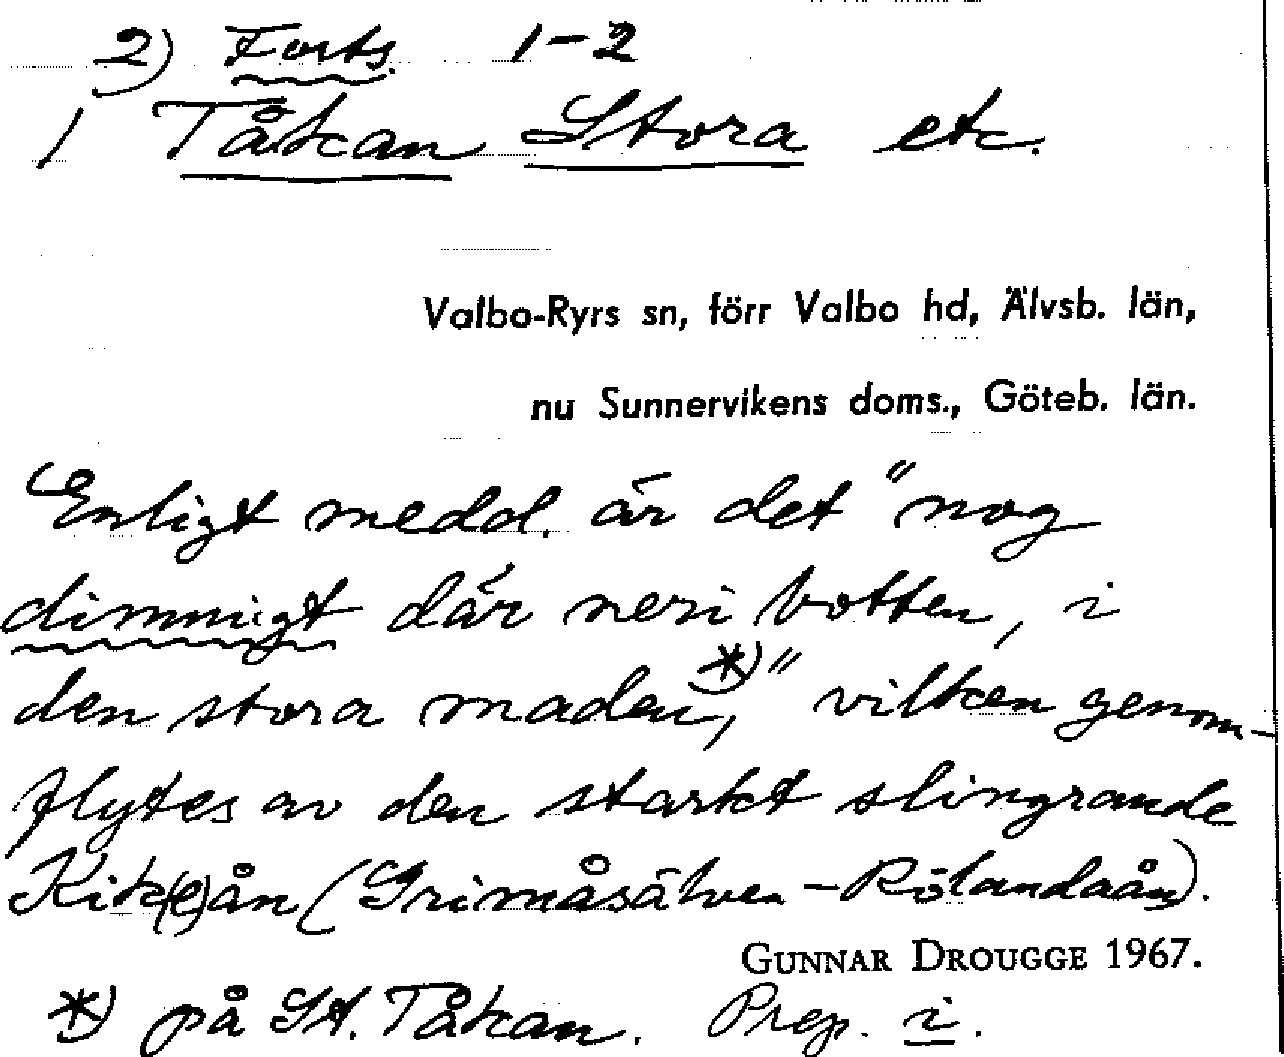 2) Forts. 1-2
1 Tåkan Stora etc.
Valbo-Ryrs sn, förr Valbo hd, Älvsb. län,
nu Sunnervikens doms., Göteb. län.
Enligt medd. är det "nog
dimmigt där neri botten, i
den stora maden*)," vilken genom-
flytes av den starkt slingrande
Kik(e)ån (Grimåsälven - Rölandaån).
GUNNAR DROUGGE 1967.
*) på St. Tåkan. Prep. i.